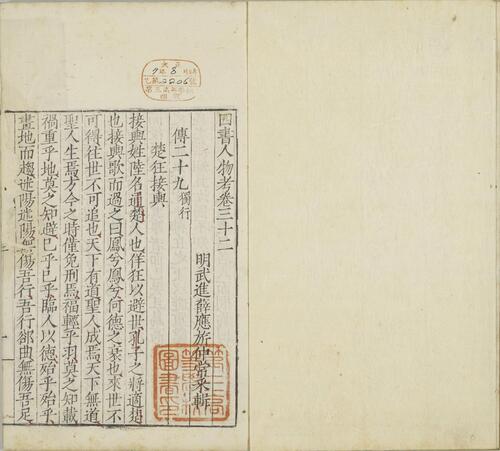 四書人物考卷三十二
明武進薛應旂仲常采輯
傳二十九 獨行
楚狂接輿
接輿姓陸名通楚人也佯狂以避世孔子之將適楚
也接輿歌而過之曰鳳兮鳳兮何德之衰也來世不
可待往世不可追也天下有道聖人成焉天下無道
聖人生焉方今之時僅免刑焉福輕乎羽莫之知載
禍重乎地莫之知避已乎已乎臨人以德殆乎殆乎
畫地而趨迷陽迷陽無傷吾行吾行郤曲無傷吾足
2206
第三高
等學校
圖書印